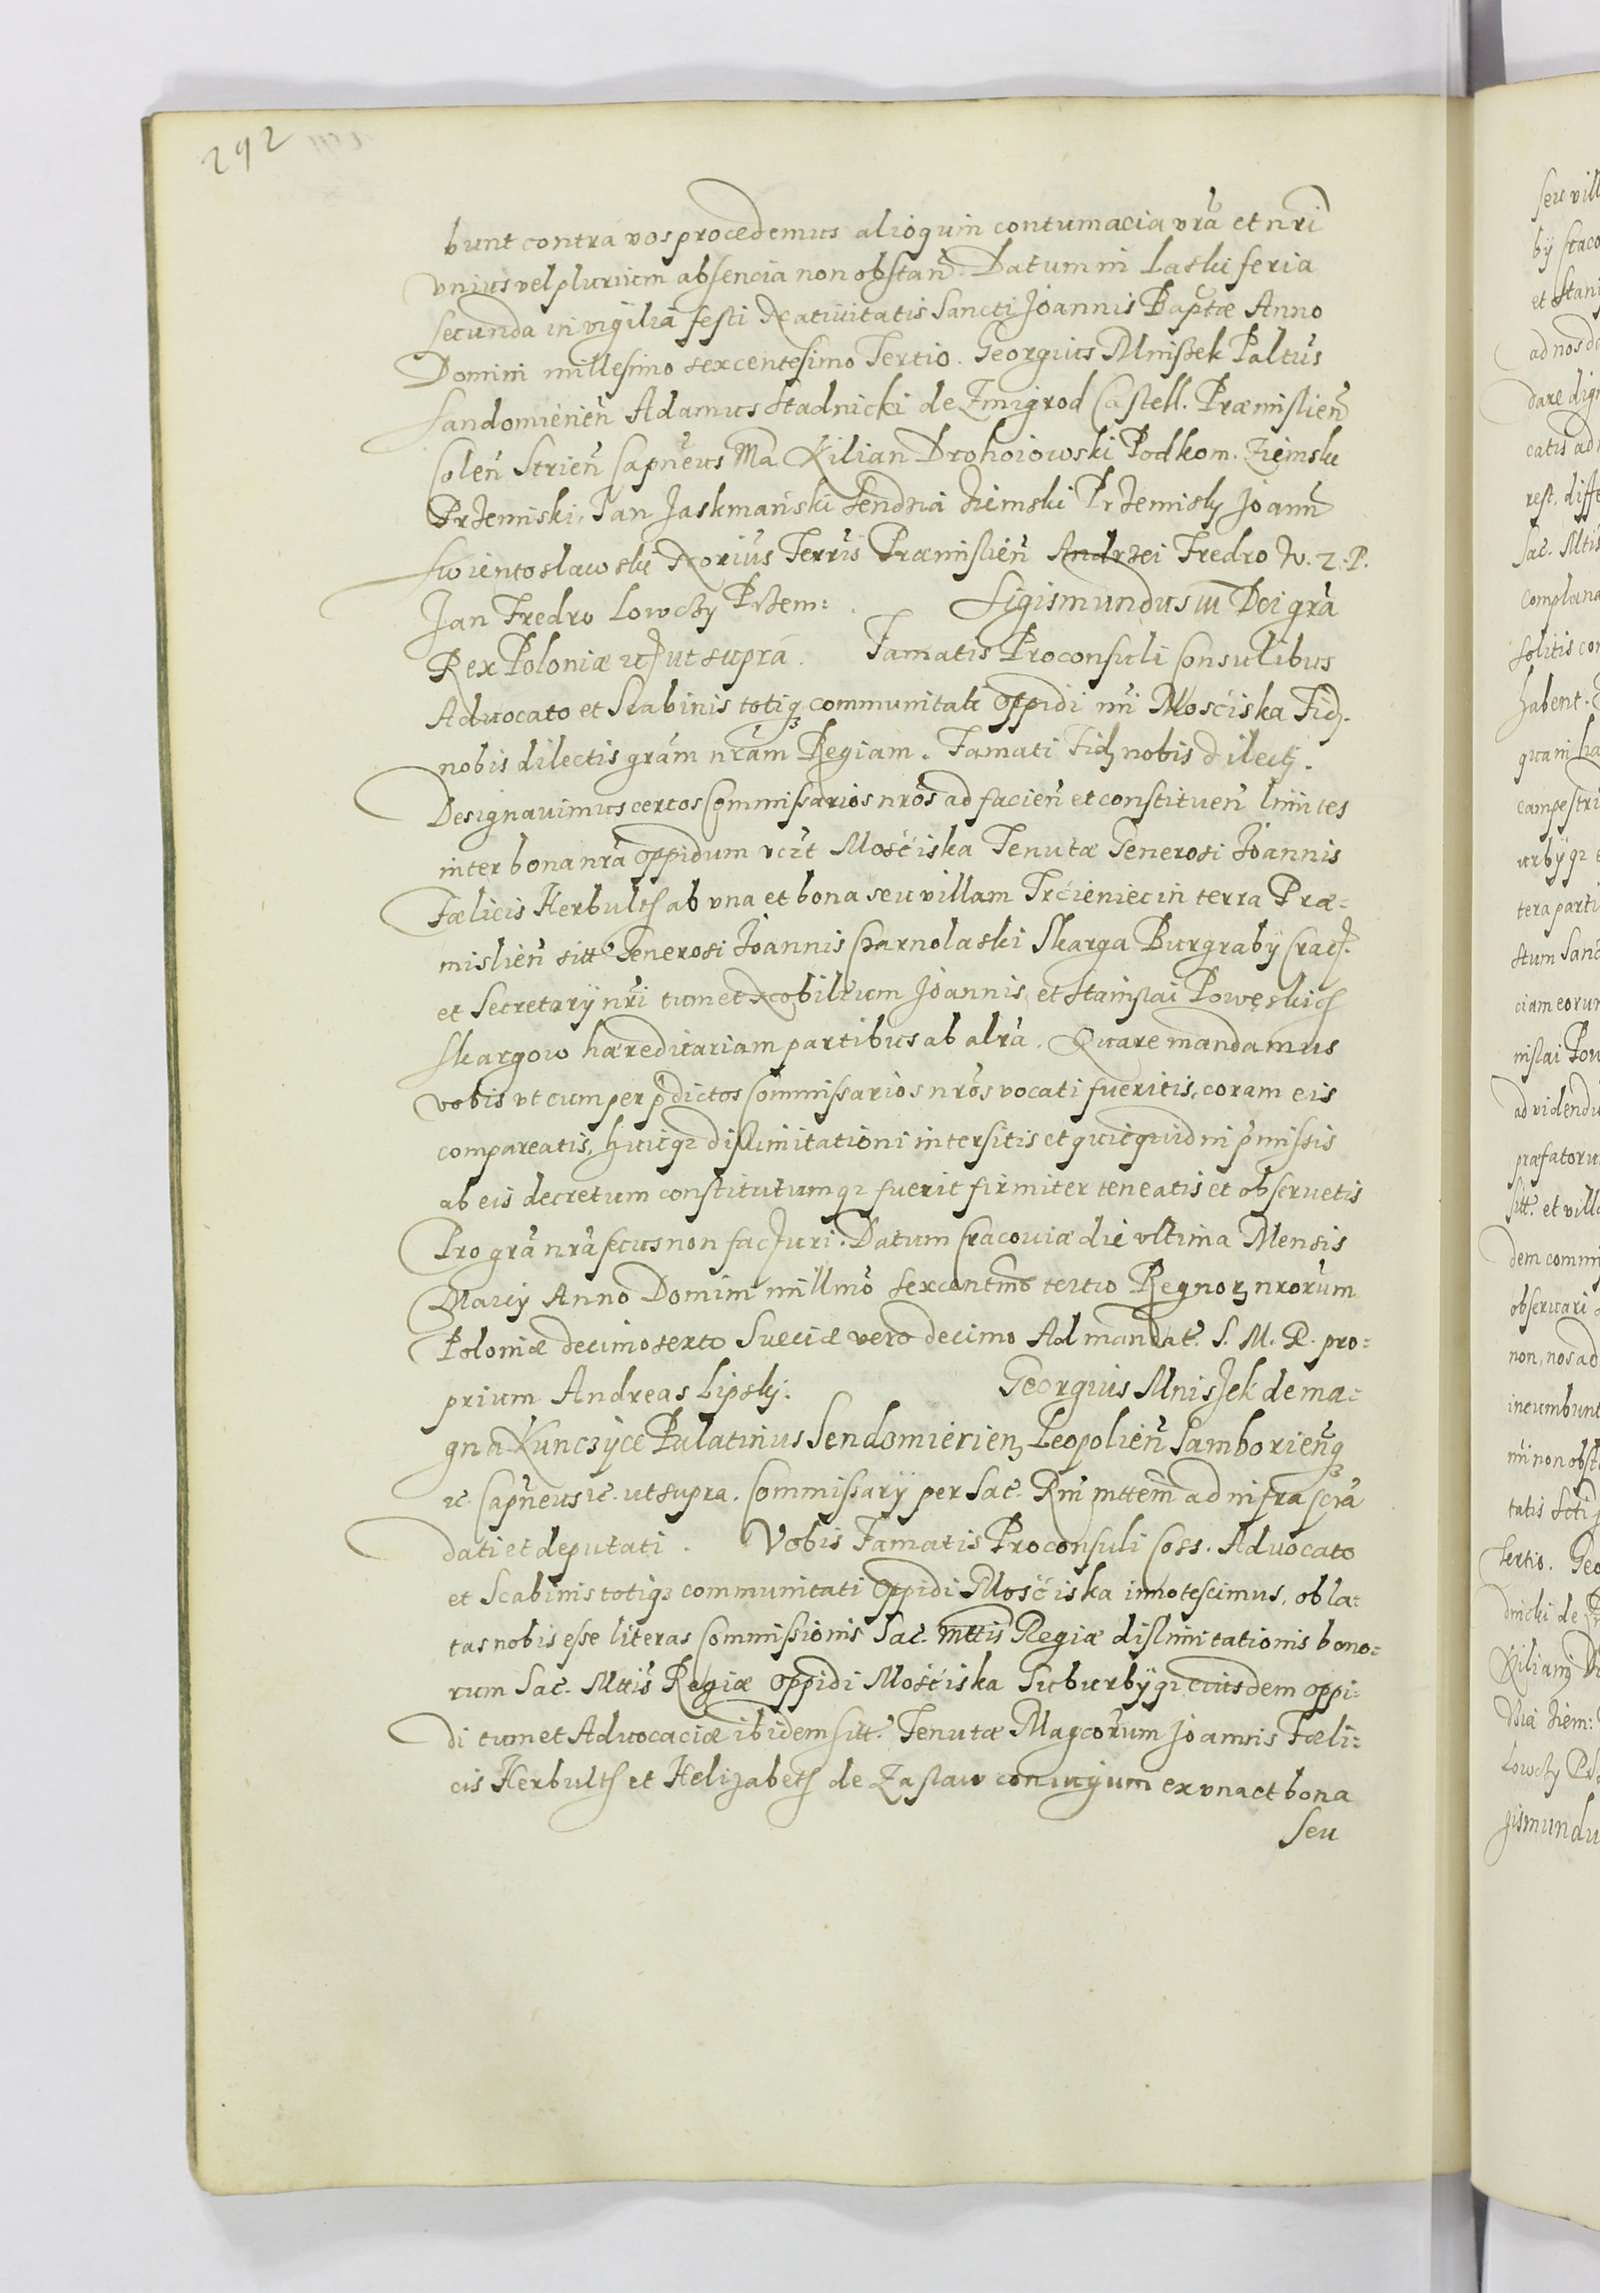 292
bunt contra vos procedemus alioquin contumacia vrã et nri
vnius vel plurium absencia non obstañ. Datum in Laski feria
secunda in vigilia festi Nativitatis Sancti Joannis Baptæ Anno
Domini millesimo sexcentesimo Tertio. Georgius Mnissek Paltus
Sandomirieñ Adamus Stadnicki de Zmigrod Castell. Præmislieñ
Coleñ Strieñ Capñeus Mã Kilian Drohoiowski Podkom. Ziemski
Przemiski, Jan Jaskmański Sendzia Ziemski Przemisly Joann
Swientoslawski Norius Terris Præmislieñ Andrzei Fredro W. Z. P.
Jan Fredro Lowczy Przem: Sigismundus III Dei gra
Rex Poloniæ ut supra. Famatis Proconsuli Consulibus
Advocato et Scabinis totiq3 communitati Oppidi nri Mosciska Fid.
nobis dilectis grãm nrãm Regiam. Famati Fid nobis dilecti.
Designavimus certos Commissarios nros ad facieñ et constitueñ limites
inter bona nrã Oppidum vczt Mosciska Tenutæ Generosi Joannis
Fælicis Herbulth ab vna et bona seu villam Trcieniec in terra Præ-
mislieñ sitt Generosi Joannis Charnolaski Skarga Burgrabÿ Crac.
et Secretarÿ nri tum et Nobilium Joannis et Stanislai Poweskich
Skargow hæreditariam partibus ab alrã. Quare mandamus
vobis vt cum per pdictos Commissarios nros vocati fueritis, coram eis
compareatis, huicq3 dislimitationi intersitis et quicquid in pmissis
ab eis decretum constitutumq3 fuerit firmiter teneatis et observetis
Pro grã nrã secus non facturi. Datum Cracoviæ die vltima Mensis
Maiÿ Anno Domini millmo sexcentmo tertio Regnor nrorum
Poloniæ decimo sexto Sueciæ vero decimo Ad mandat. S. M. R. pro-
prium Andreas Lipsky. Georgius Mniszek de ma-
gna Kunczÿce Palatinus Sendomierien, Leopolieñ Samborieñq3
ꝛc. Capñeus ꝛc. ut supra. Commissarÿ per Sac. Rm mttem ad infrascra
dati et deputati. Vobis Famatis Proconsuli Coss. Advocato
et Scabinis totiq3 communitati Oppidi Mosciska innotescimus, obla-
tas nobis esse literas Commissionis Sac. Mttis Regiæ dislimitationis bono-
rum Sac. Mttis Regiæ Oppidi Mosciska Suburbÿq3 eiusdem Oppi-
di tum et Advocaciæ ibidem sitt. Tenutæ Magcorum Joannis Fæli-
cis Herbulth et Helizabeth de Zaslaw coniugum ex vna et bona
seu